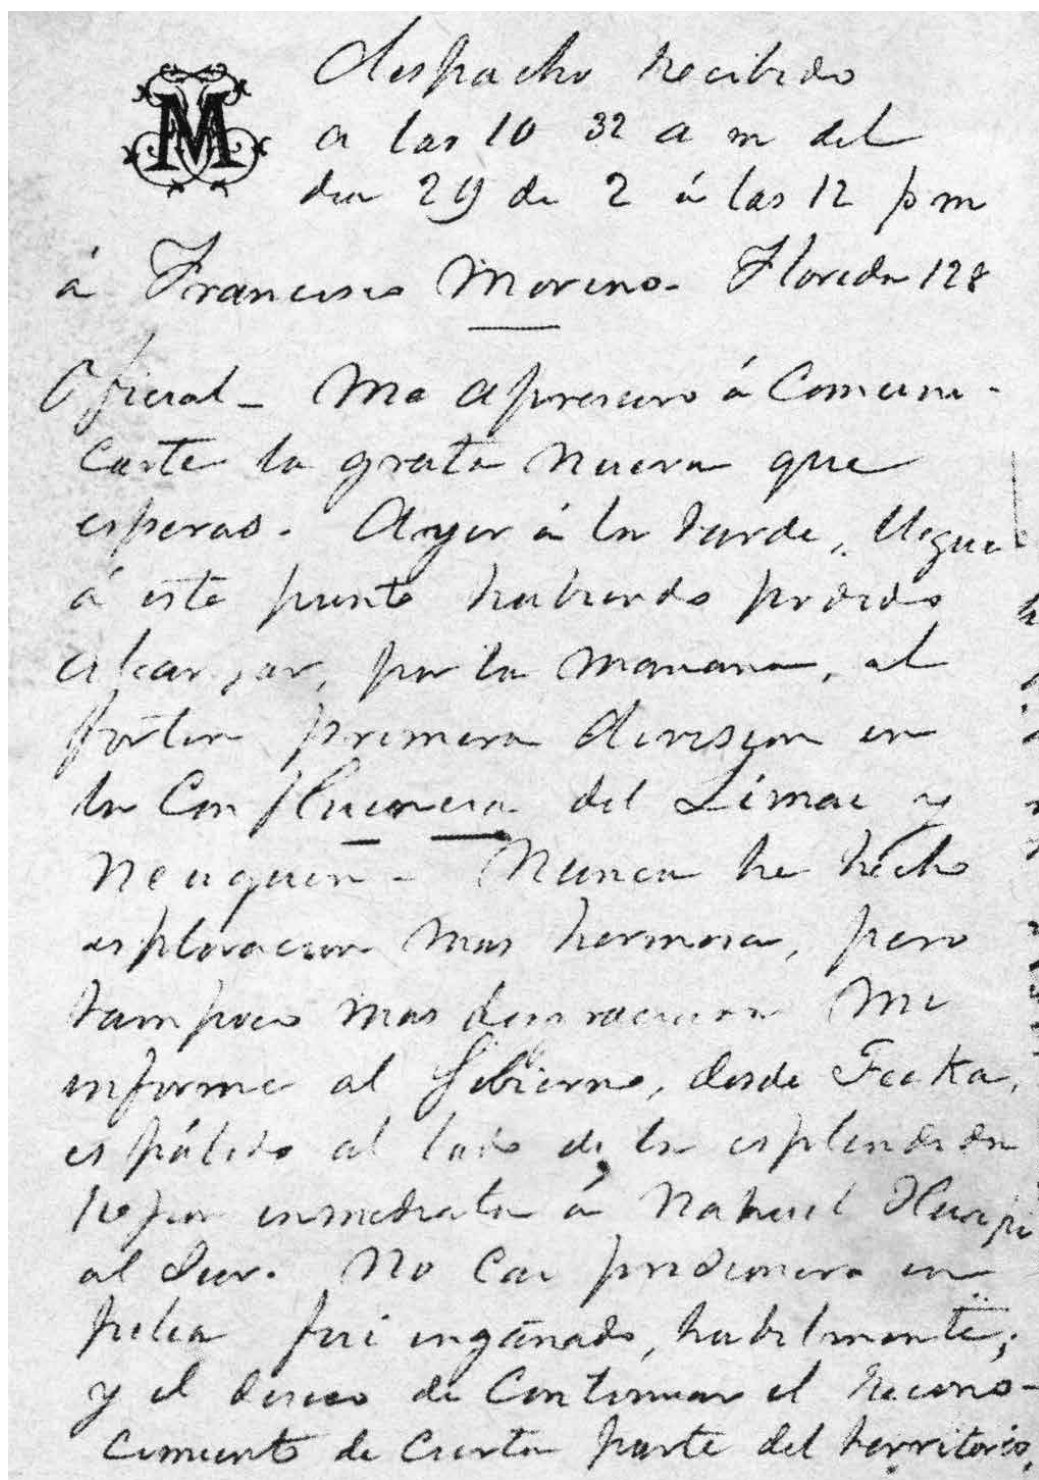 M
Despacho recibido
a las 10 32 a m del
dia 29 de 2 á las 12 p m
á Francisco Moreno - Florida 128
Oficial - Me apresuro á comuni-
carte la grata nueva que
esperas. Ayer á la tarde, llegué
á este punto habiendo podido
alcanzar, por la manana, al
fortin primera division en
la Confluencia del Limai y
Neuquen - Nunca he hecho
esploracion mas hermosa, pero
tampoco mas desgraciada Mi
informe al Gobierno, desde Tecka,
es pálido al lado de la esplendida
rejion inmediata á Nahuel Huapi
al Sur. No cai prisionero en
pelea fui enganado, habilmente,
y el deseo de continuar el recono-
cimiento de cierta parte del territorio,